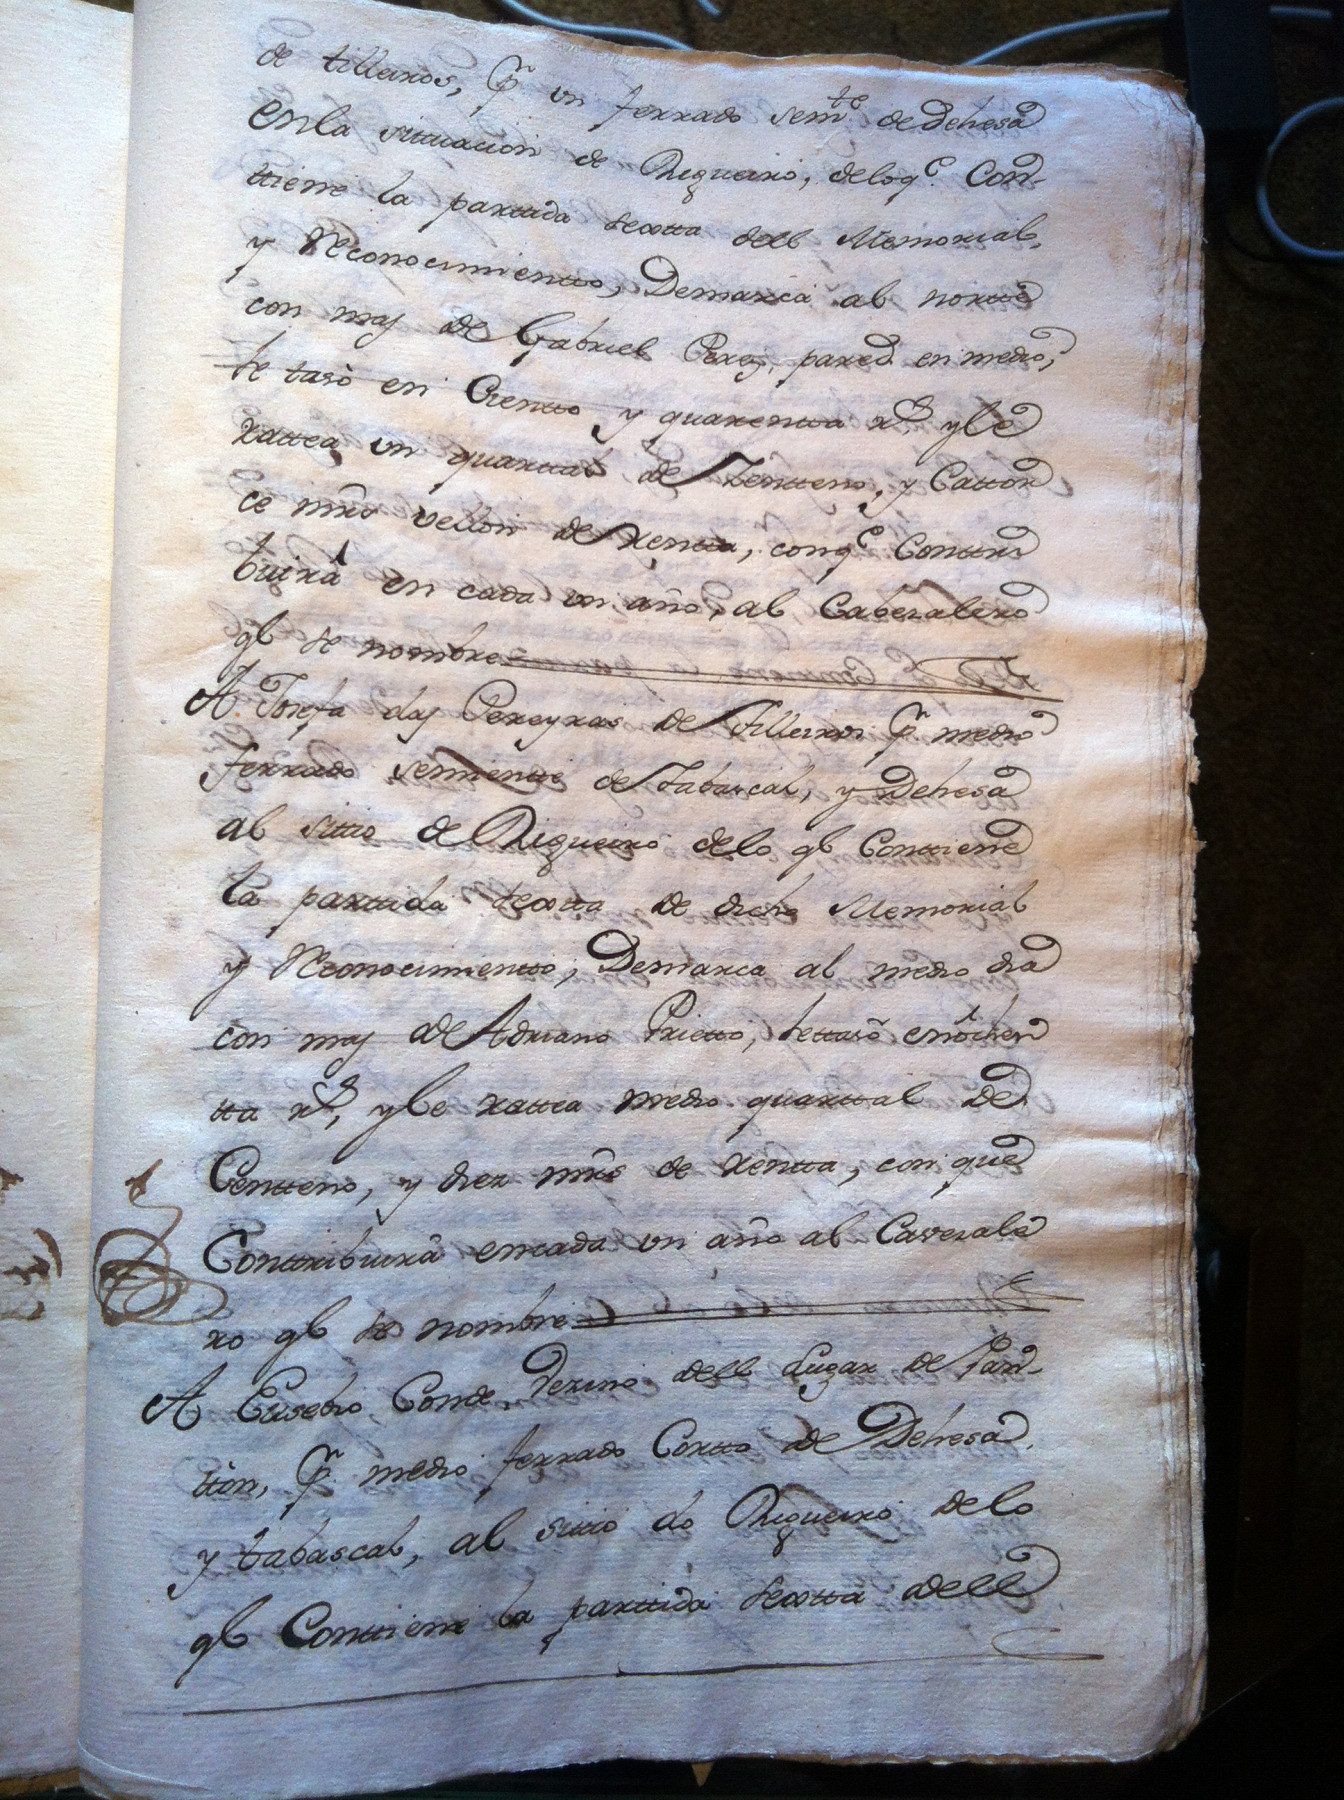 de tilleiros, pr un ferrado semte de Dehesa
enla situacion de Rigueiro, deloqe Con-
ttiene la parttida sextta dell Memorial,
y Reconocimientto, Demarca al nortte
con mas de Gabriel Perez, pared en medio,
se tasò en Cientto y quarentta rs, yle
rattea un quarttal de Zentteno, y Cattor
ce mrs vellon de rentta, conqe Conttri
buirá en cada un año, al Cabezaleiro
ql se nombre
A Josefa das Pereyras de tilleiros pr medio
ferrado semientte de tabascal, y Dehesa
al sittio de Rigueiro delo ql Conttiene
la parttida sextta de dicho Memorial
y Reconocimientto, Demarca al medio dia
con mas de Adriano Prietto, settasò enòchen
tta rs, yle rattea medio quarttal de
Centteno, y diez mrs de rentta, con que
Conttribuirá encada un año al Cavezalei
ro ql se nombre
A Eusebio Conde, Vezino dell Lugar de
pr medio ferrado Cortto de Dehesa,
y tabascal, al sittio do Rigueiro delo
ql Conttiene la parttida sextta dell